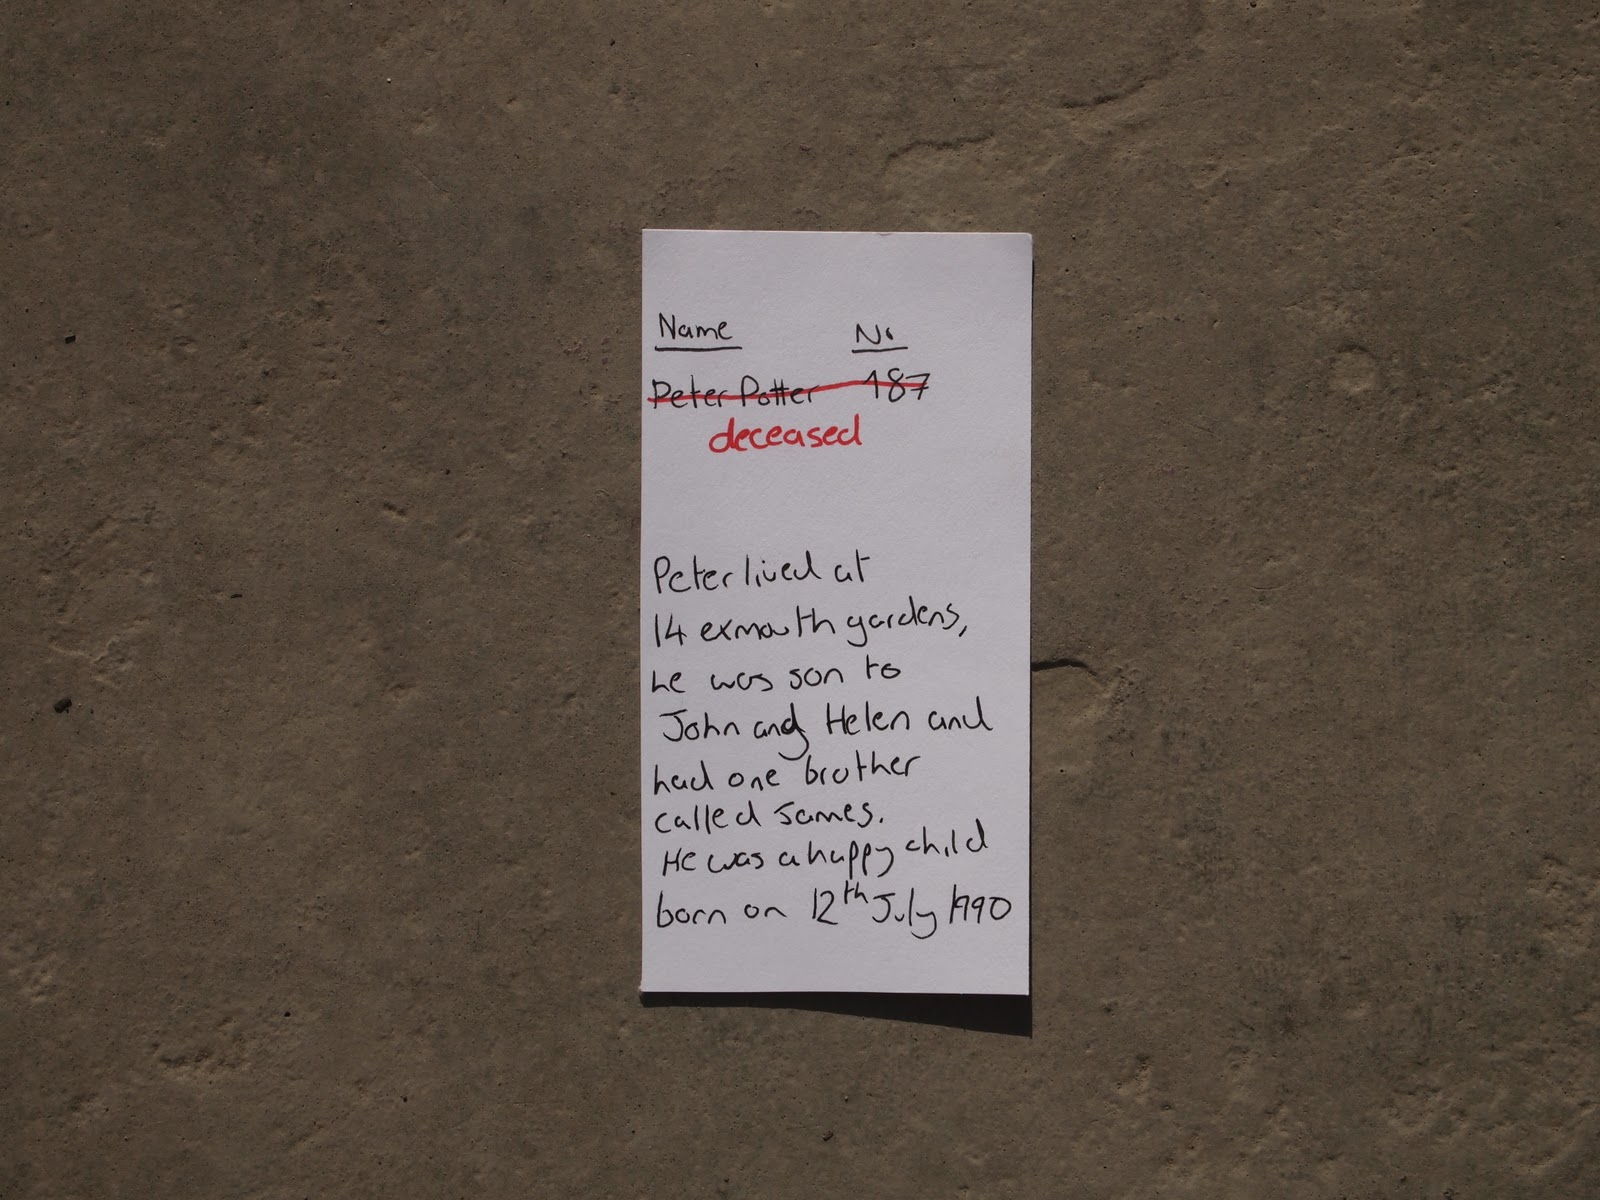 Name No
Peter Potter 187
deceased
Peter lived at
14 exmouth gardens,
he was son to
John and Helen and
had one brother
called James.
He was a happy child
born on 12th July 1990